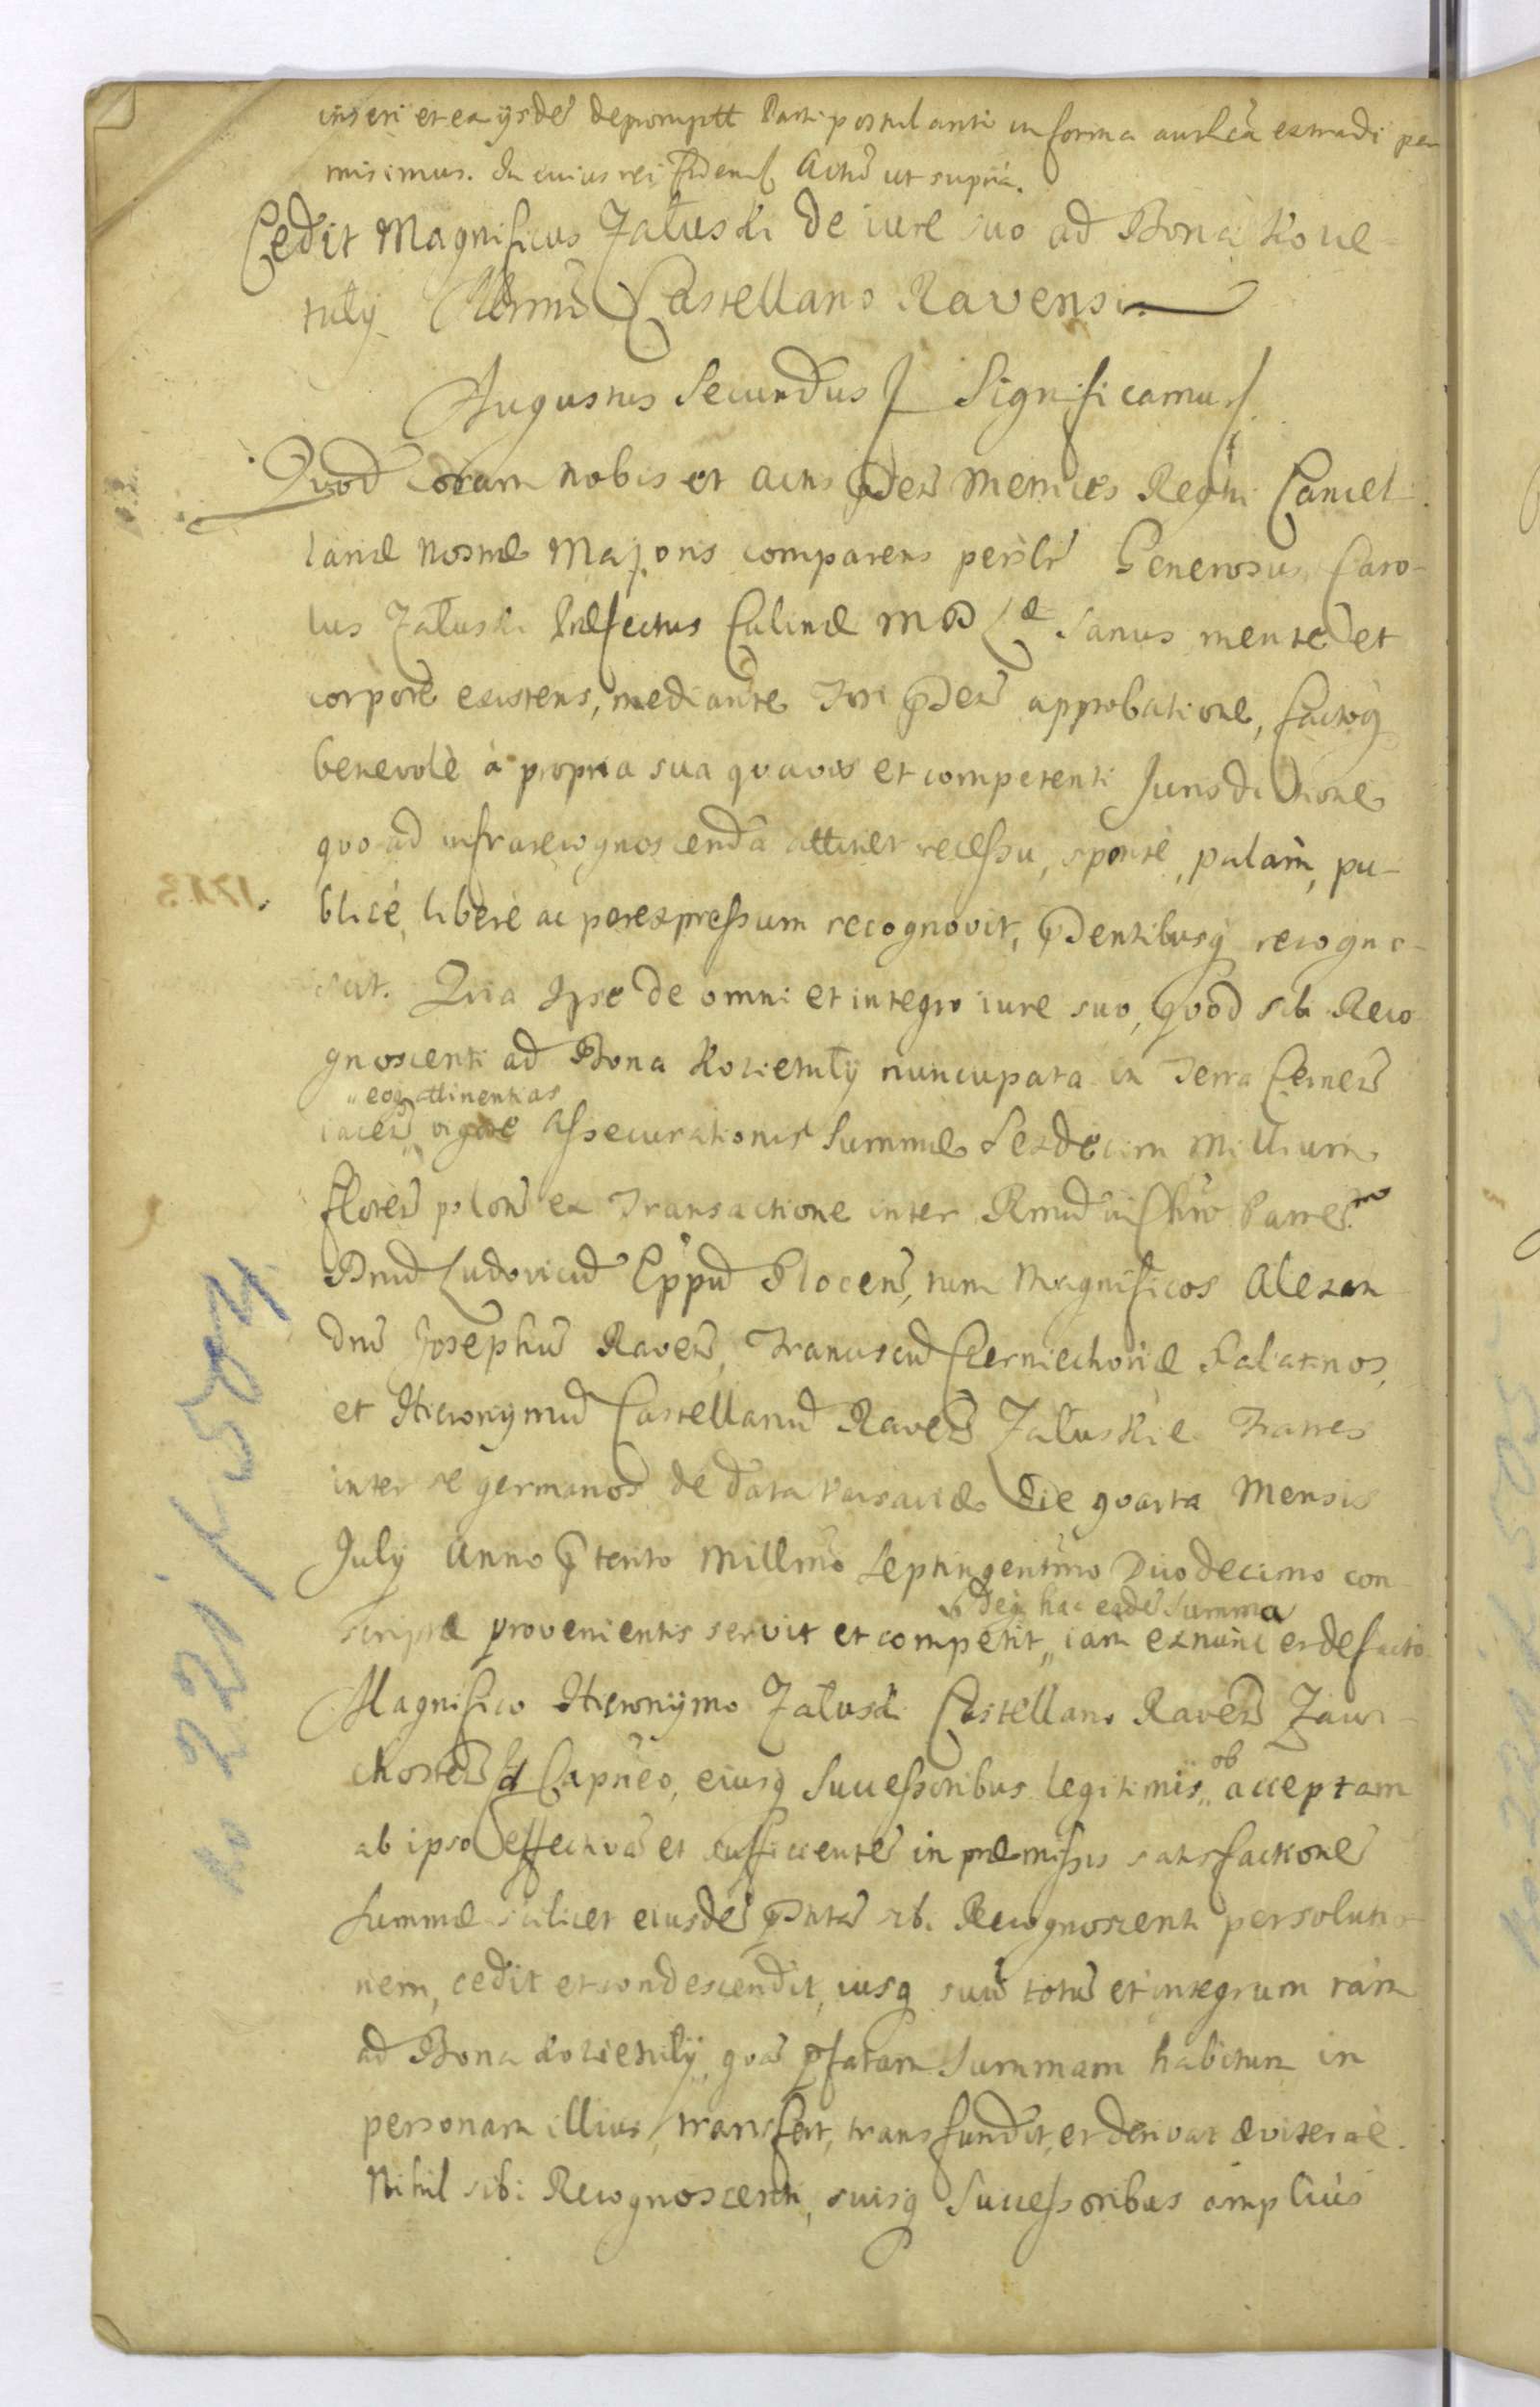 inseri et ex ijsdẽ depromptt Parti postulanti in forma authca extradi per
misimus. In cuius rei fidem Actũ ut supra.
Cedit Magnificus Załuski de iure suo ad Bona Kozie
tuły Castellano Ravensi.
Augustus Secundus Significamus
Quod coram nobis et actis Metrices Regni Cancel-
lariæ Nostræ Majoris comparens perillr̃ Generosus Caro-
lus Załuski Præfectus Culinæ M D L æ Sanus mente et
corpore existens, mediante approbatione, factoq
benevolè à propria sua quavis et competenti Jurisdictione
quo ad infrarecognoscenda attinet recessu, sponte, palàm, pu-
blicè, liberè ac per expressum recognovit, recogno-
scit. Quia Ipse de omni et integro iure suo, quod sibi Reco
gnoscenti ad Bona Kozietuły nuncupata in Terra Cernen̄
eoq attinentias
iacen̄ vigore assecurationis Summæ Sexdecim Millium
floren̄ polon̄ ex Transactione inter Rmũ in Chro Patrem
Dnũ Ludovicũ Eppũ Plocen̄, tum Magnificos Alexan
drũ Josephũ Raven̄, Franciscũ Czerniechoviæ Palatinos,
et Hieronymũ Castellanũ Raven̄ Załuskie Fratres
inter se germanos de data Varsaviæ die quarta Mensis
July Anno Millmo Septingentmo Duodecimo con
hac eadẽ Summa
scriptæ provenientis servit et competit iam exnunc et defacto
Magnifico Hieronymo Załuski Castellano Raven̄ Zawi-
chosten̄ Capneo, eiusq Successoribus legitimis ob acceptam
ab ipso effectivã et sufficientẽ in præmissis satisfactionẽ
Summæ scilicet eiusdẽ sibi Recognoscenti persolutio
nem, cedit et condescendit, iusq suũ totũ et integrum tam
ad Bona Kozietuły, quã summam habitum in
personam illius, transfert, transfundit, et derivat æviternè.
Nihil sibi Recognoscenti, suisq Successoribus amplius
No 221 k 584
1713.